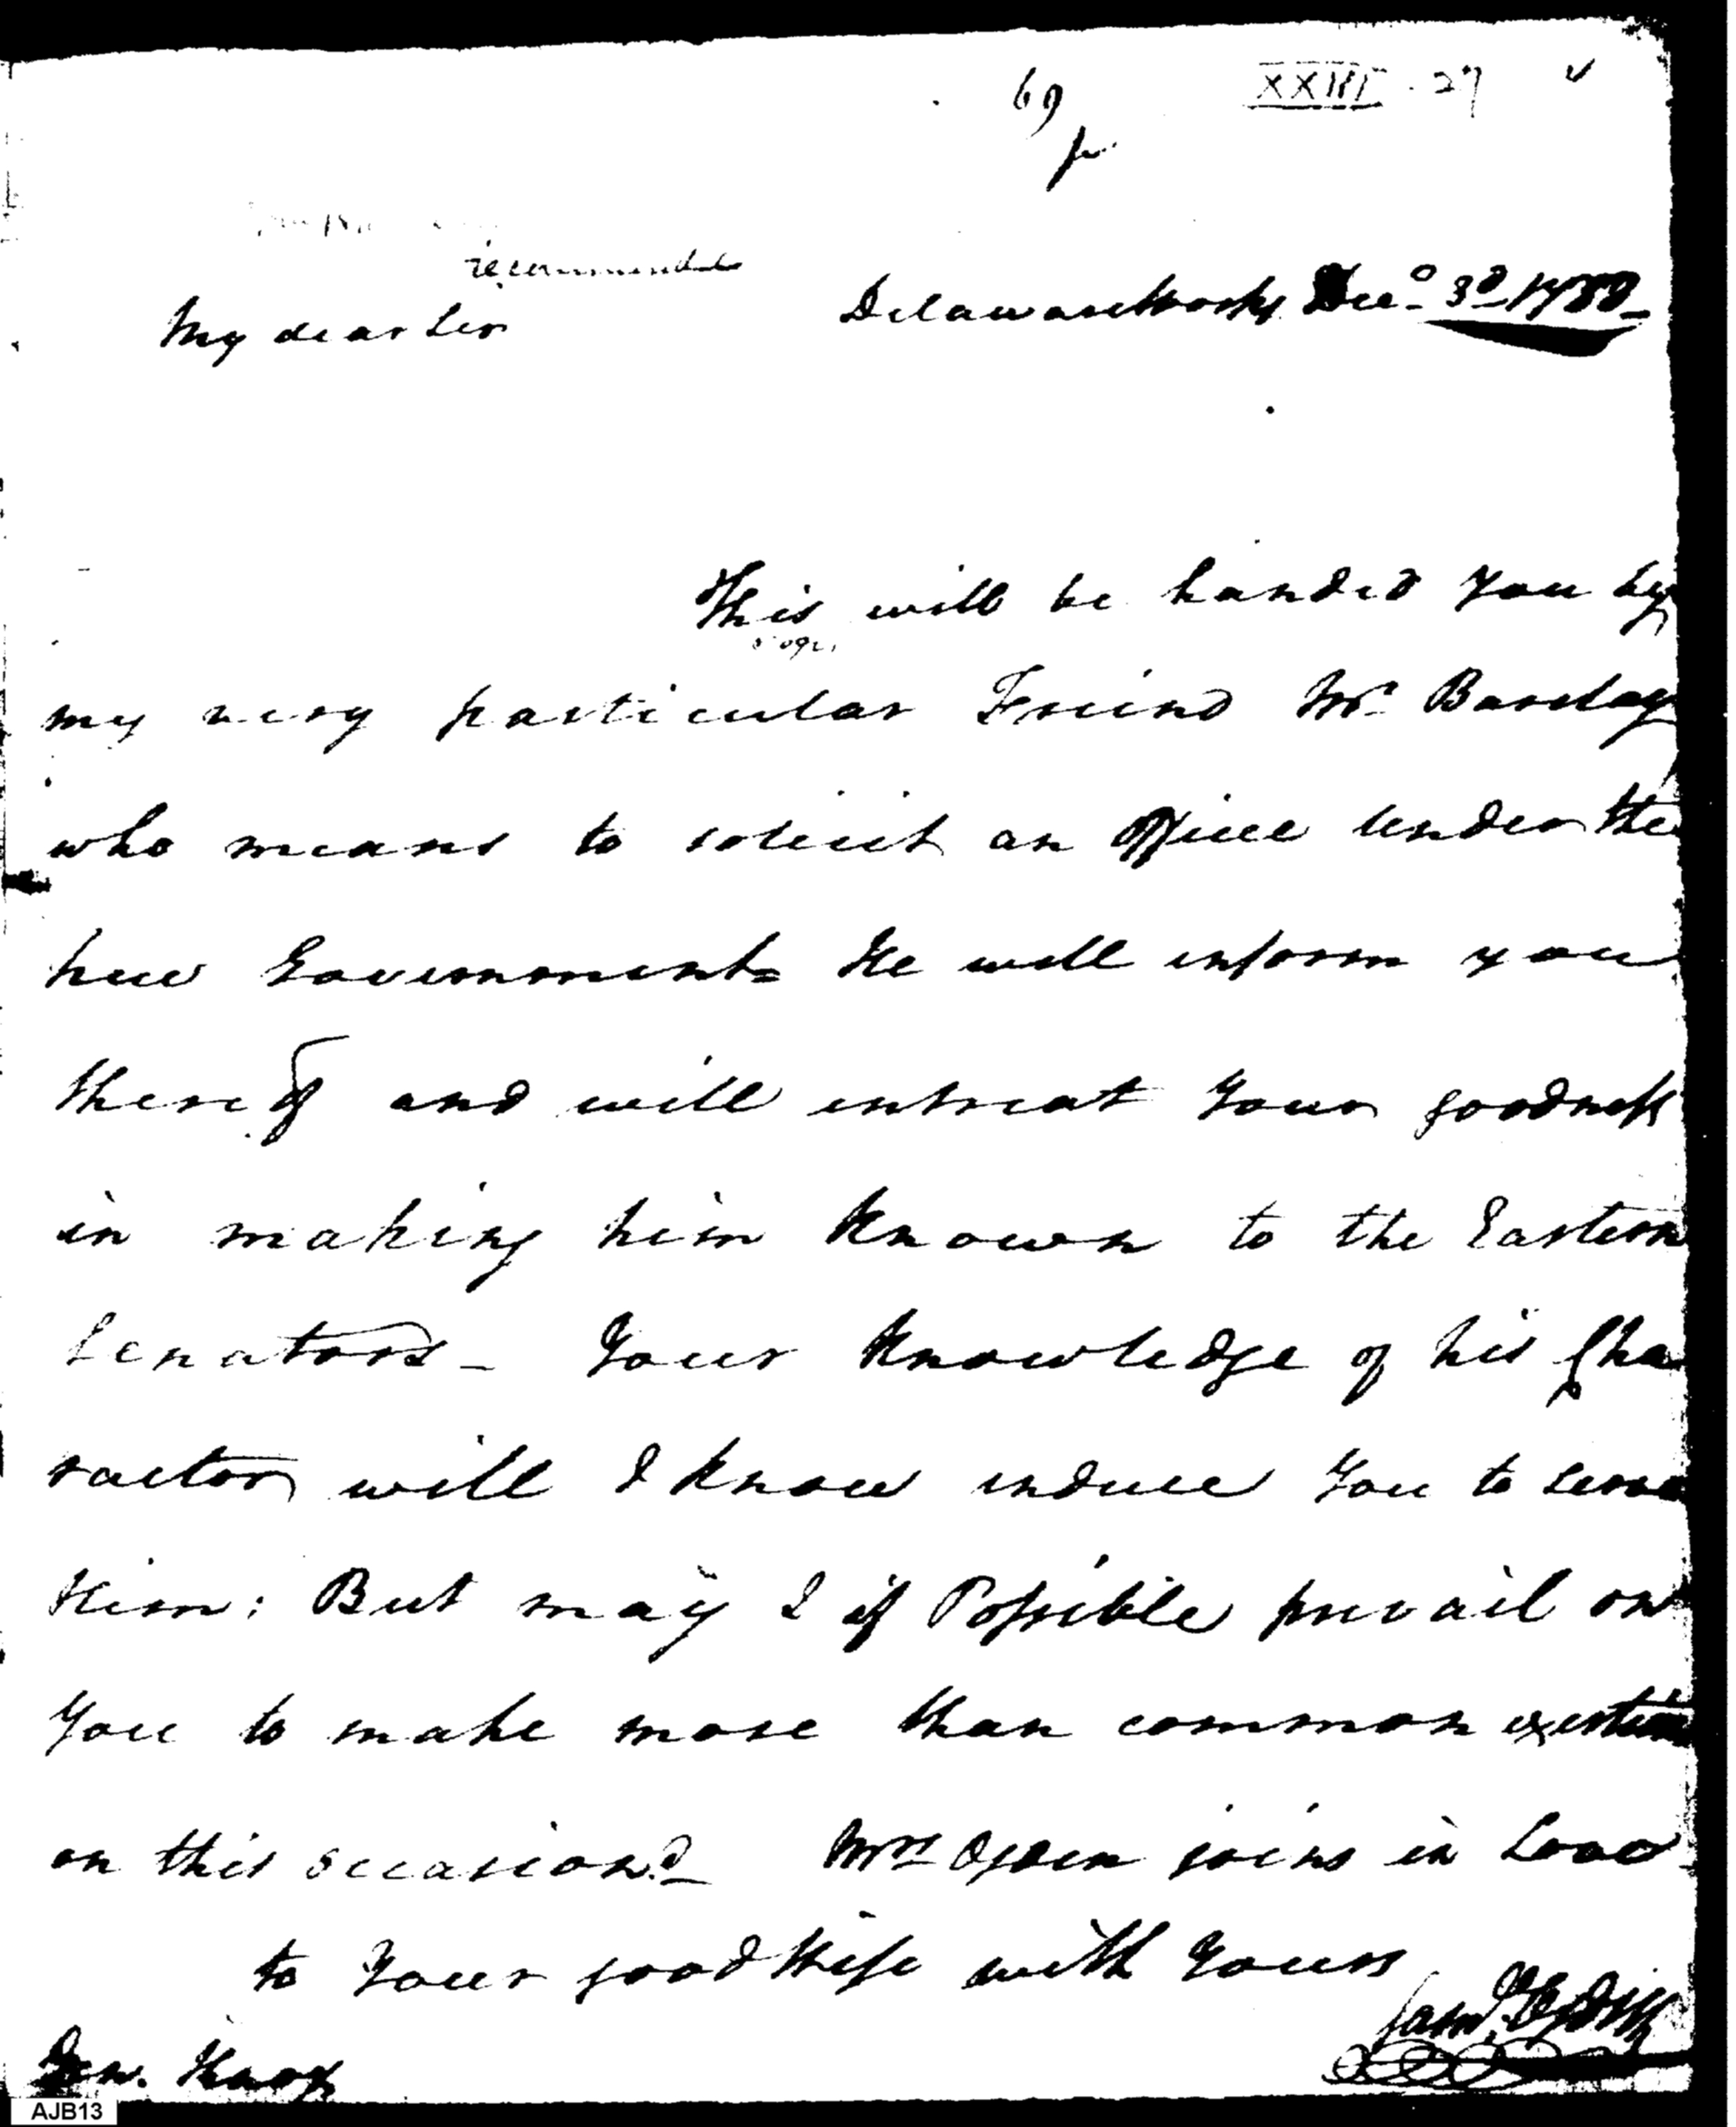 69
XXIII . 27
recommend
Delaware Works Decr 3d 1788
My dear Sir
This will be handed you by
my very particular Friend Mr Barclay
who means to solicit an Office under the
new Government He will inform you
thereof and will intreat Your goodness
in making him known to the Eastern
Senators - Your knowledge of his Cha
ractor will I know induce You to serve
Him: But may I if Possible prevail on
You to make more than common exertion
on this occasion? - Mrs Ogden joins in Love
to Your good Wife with Yours
Saml Ogden
Gen. Knox
AJB13